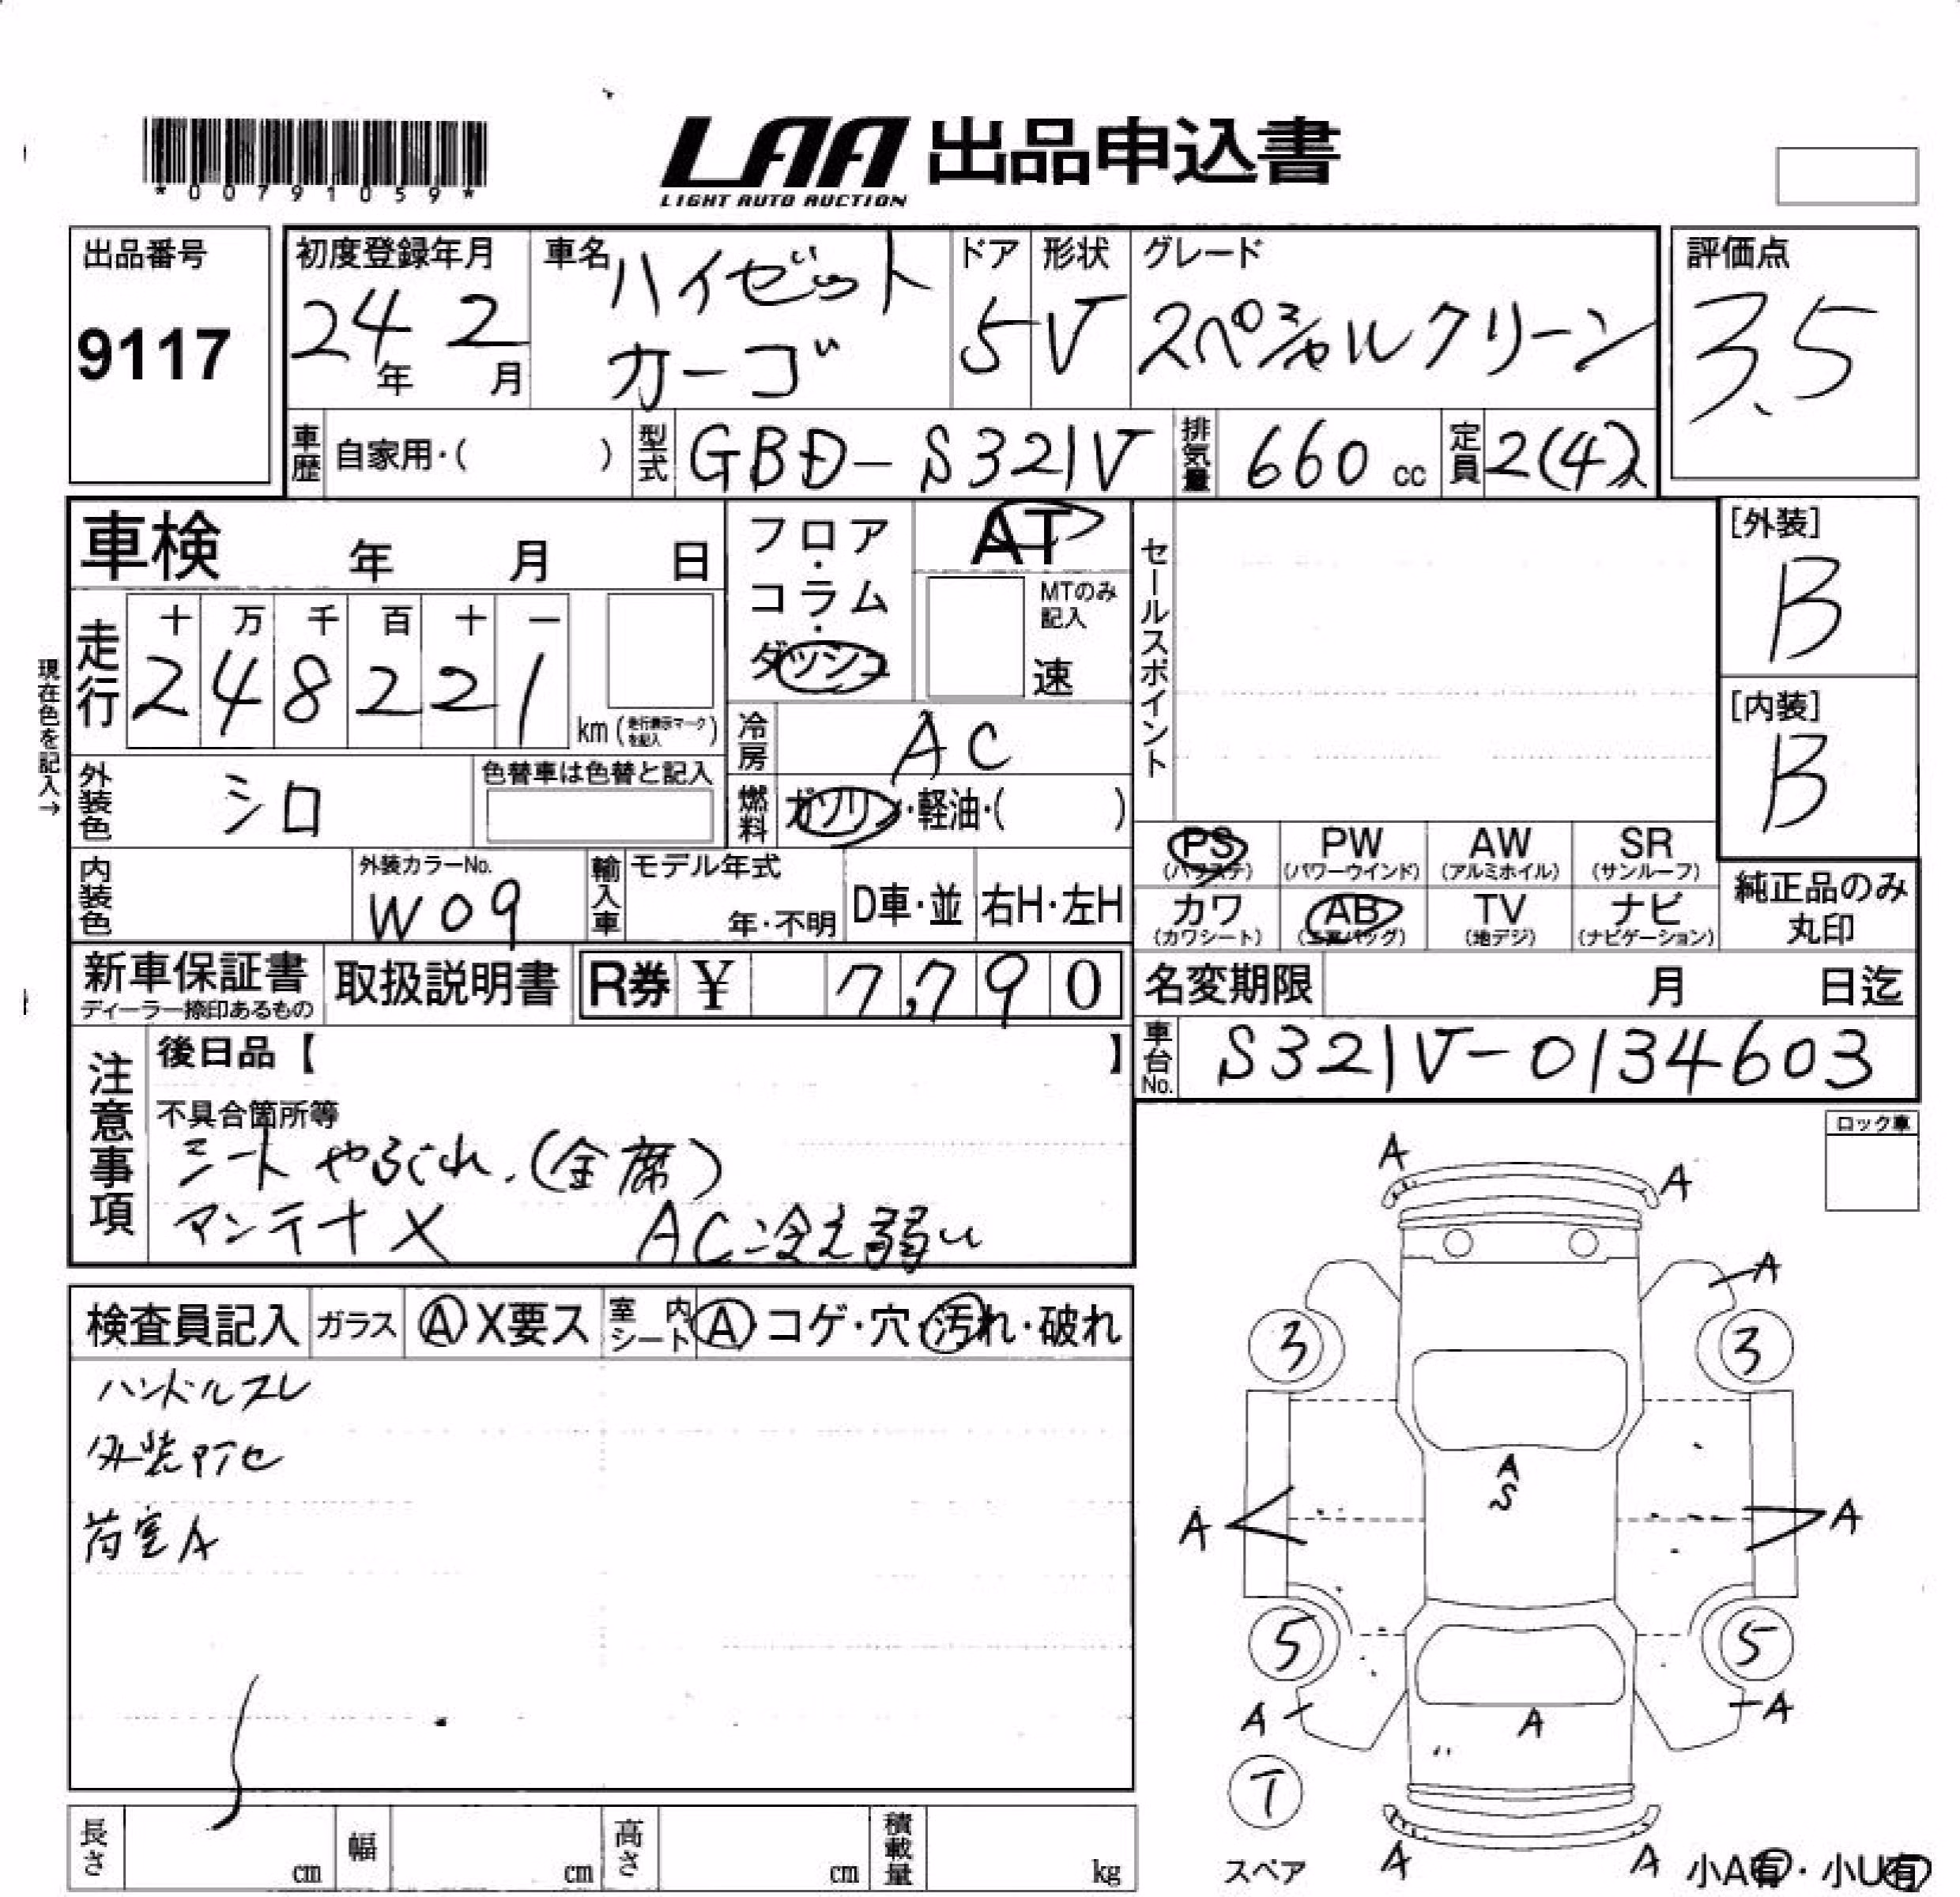 *00791059*
LAA 出品申込書
LIGHT AUTO AUCTION
出品番号
9117
初度登録年月
24年 2月
車名 ハイゼット
カーゴ
ドア 5
形状 V
グレード
スペシャルクリーン
評価点
3.5
車歴 自家用・( )
型式 GBD-S321V
排気量 660 cc
定員 2(4)人
車検 年 月 日
フロア・コラム・ダッシュ
AT
MTのみ記入
速
セールスポイント
[外装]
B
[内装]
B
走行
十 万 千 百 十 一
2 4 8 2 2 1
km (走行表示マークを記入)
現在色を記入→
冷房 AC
外装色 シロ
色替車は色替と記入
燃料 ガソリン・軽油・( )
PS
(パワステ)
PW
(パワーウインド)
AW
(アルミホイル)
SR
(サンルーフ)
カワ
(カワシート)
AB
(エアバッグ)
TV
(地デジ)
ナビ
(ナビゲーション)
純正品のみ
丸印
内装色
外装カラーNo.
W09
輸入車
モデル年式
年・不明
D車・並
右H・左H
新車保証書
ディーラー捺印あるもの
取扱説明書
R券 ¥ 7,790
名変期限 月 日迄
車台No. S321V-0134603
注意事項
後日品【 】
不具合箇所等
シートやぶれ.(全席)
アンテナX AC冷え弱い
ロック車
検査員記入
ガラス A X要ス
室内シート A コゲ・穴・汚れ・破れ
ハンドルスレ
外装アセ
荷室A
A
A
A
3
3
A
S
A
A
5
5
A
A
A
T
スペア
A
A
小A有・小U有
長さ cm
幅 cm
高さ cm
積載量 kg